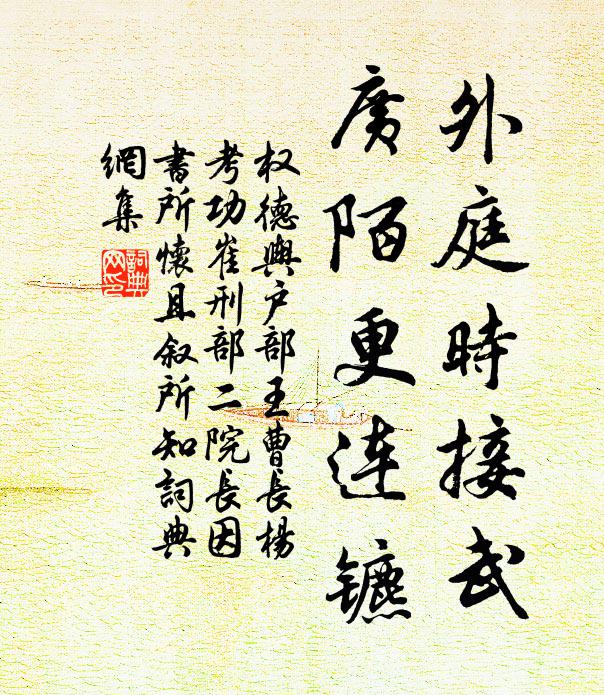 外庭時接武
广陌更连镳
权德輿户部王曹長楊
考功崔刑部二院長因
書所懷且叙所知詞典
網集
詞典網印